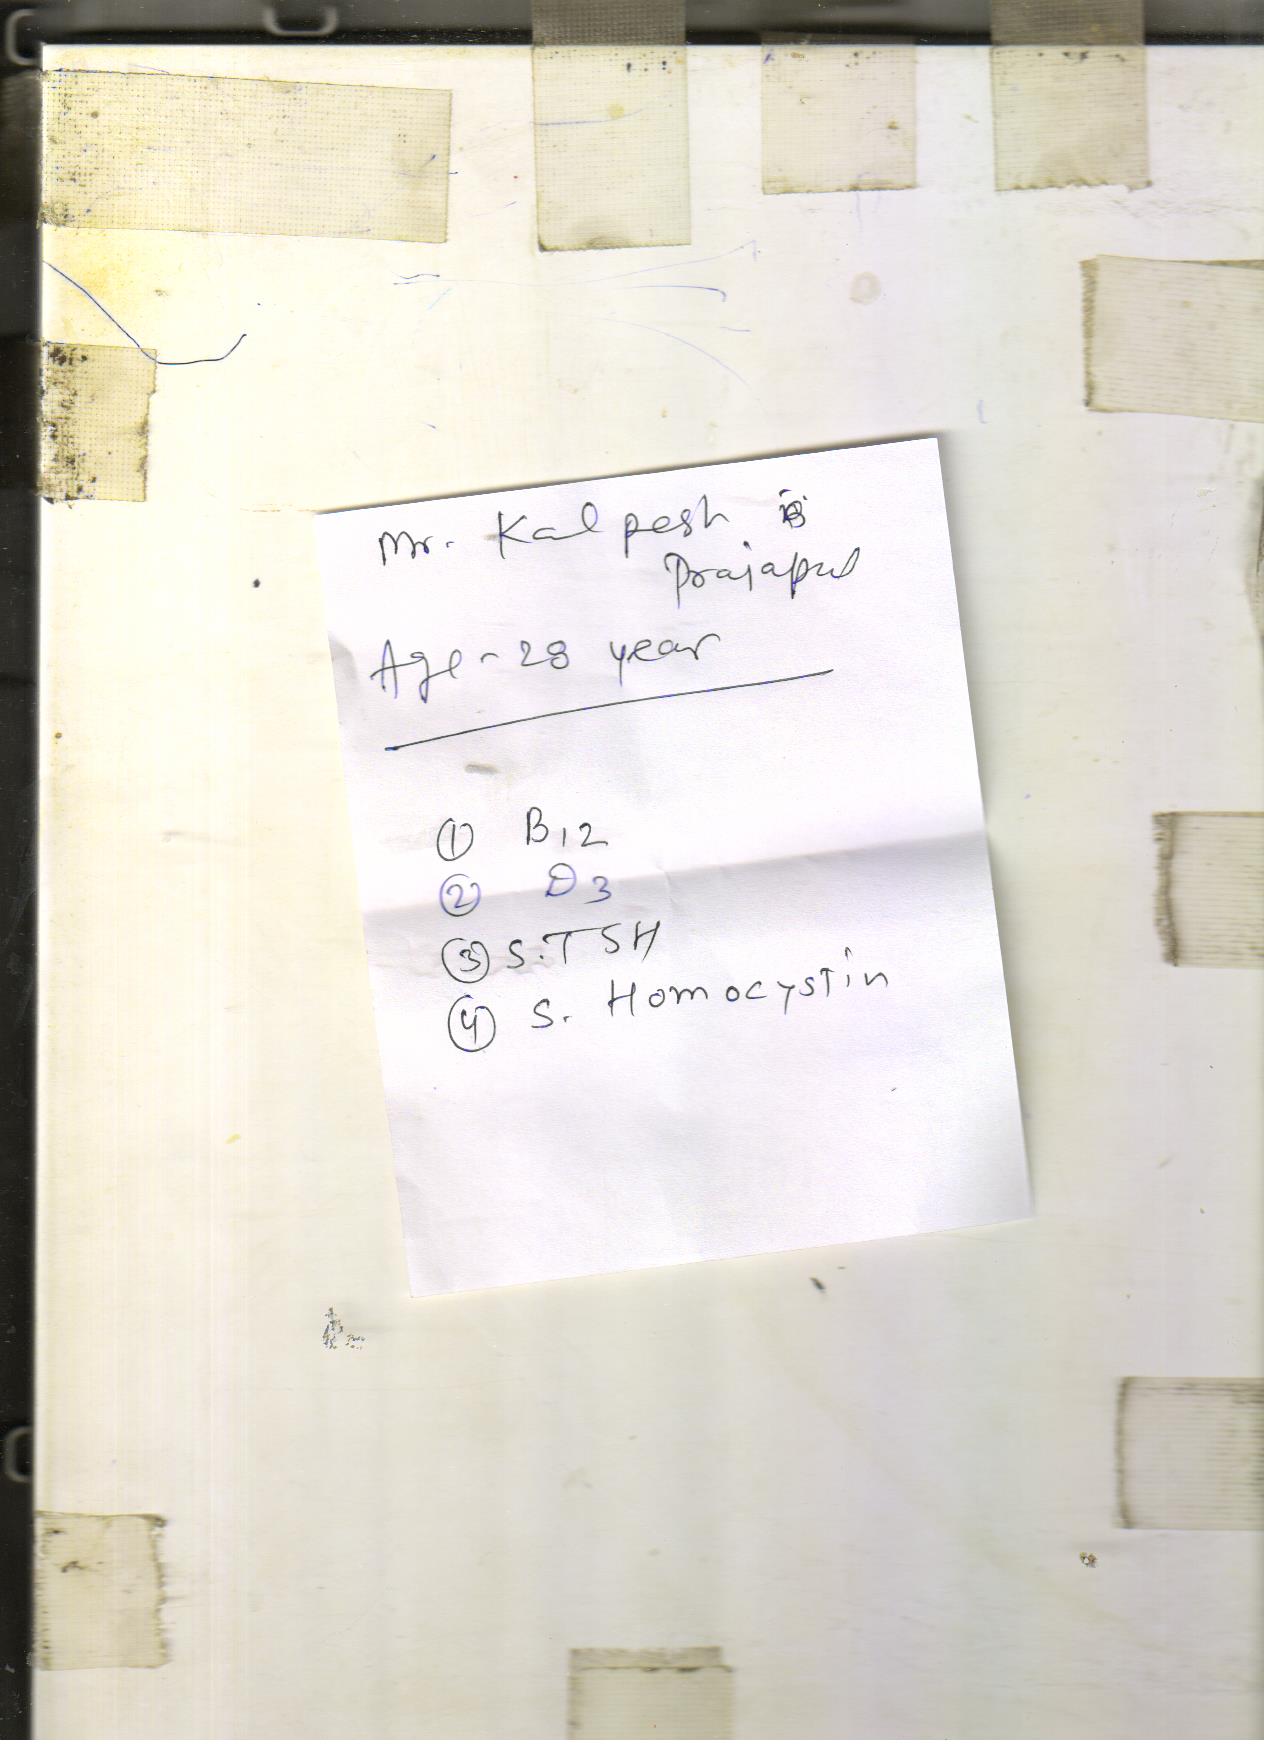 Mr. Kalpesh B
Prajapati
Age - 28 year
① B12
② D3
③ S.TSH
④ S. Homocystin